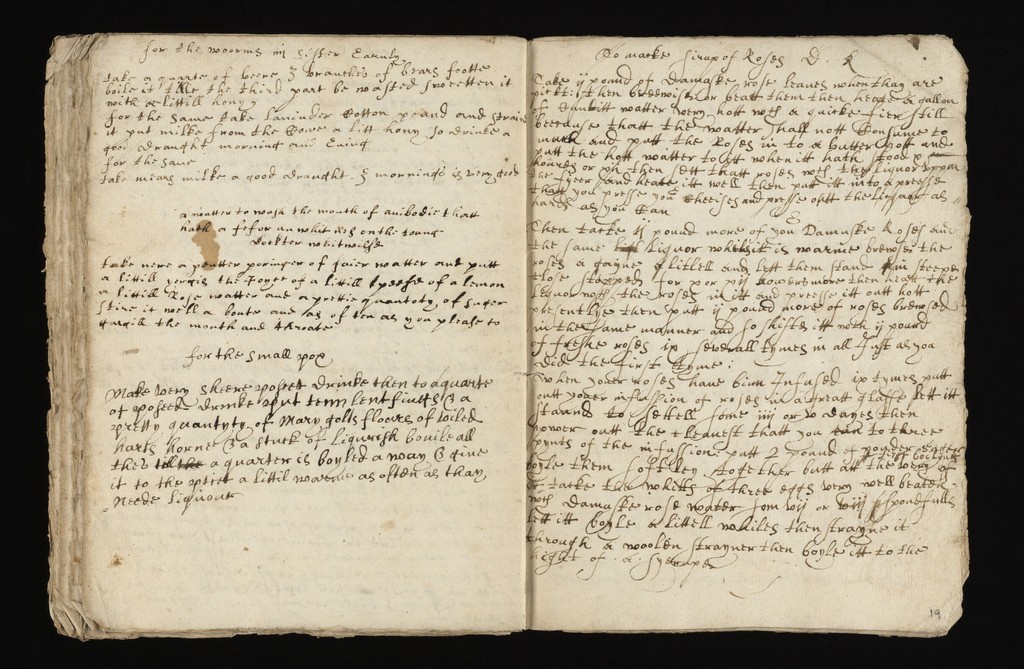 for the woorms my Sister Earnly
take a quarte of beere 3 branches of bears footte
boile it till the third part be wasted sweetten it
with a littill hony
for the same take lavinder Cotton pound and straine
it put milke from the Cowe a litt hony so drinke a
good draught morning and Evning
for the same
take mears milke a good draught 3 mornings is very good
a watter to wash the mouth of anibodie thatt
hath a fefor an whit is on the toung
Dockter whitwike
take nere a peutter poringer of faier watter and putt
a littill the of a littill of a lemon
a littill Rose watter and a prettie quantoty of suger
stire it well a boute and as of ten as you please to
gargill the mouth and throate
for the small pox
Make very sheere posset drinke then to a quarte
of possett drinke put tenn lent fiutts & a
pretty quantyty of Mary golls floars of boiled
harts horne & a stuck of liquorish bouile all
thes till the a quarter is boyled a way & give
it to the a littil warme as often as thay
neede liquour
To macke sirup of Roses D. K
Take ij pound of Damaske rose leaves when thay are
pickt: then brewse or beatt them then heate a gallon
of watter very hott with a quicke fier still
beecause thatt the watter shall nott Consume to
much and putt the Roses in to a butter pott and
putt the hott watter to itt when itt hath stood x
houres or xii then sett thatt roses with the liquor uppon
the fyer and heate itt well then putt itt into a presse
thatt you presse you cheeises and presse outt the liquor as
hard as you Can
Then tacke ij pound more of you Damaske Roses and
the same liquor whilst it is warme brewse the
roses a gayne a litell and lett them stand in steepe
close stopped for x or xij howers more then heatt the
liquor with the roses in itt and presse itt outt hott
presently then putt ij pound more of roses brewsed
in the same manner and so shifte itt with ij pound
of freshe roses ix severall tymes in all Just as you
did the first tyme:
When youer roses have binn Infused ix tymes putt
outt youer infussion of roses in a great glasse lett itt
staand to settell some iiij or v dayes then
power outt the cleanest thatt you can to three
pynts of the infussion putt 2 pound of suger
boyle them softley together butt att the very
tacke the whitts of three eggs very well beaten
with damaske rose water som vij or viij spoonfulls
lett itt boyle a littell whiles then strayne it
through a woolen strayner then boyle itt to the
hight of a syeruper
19